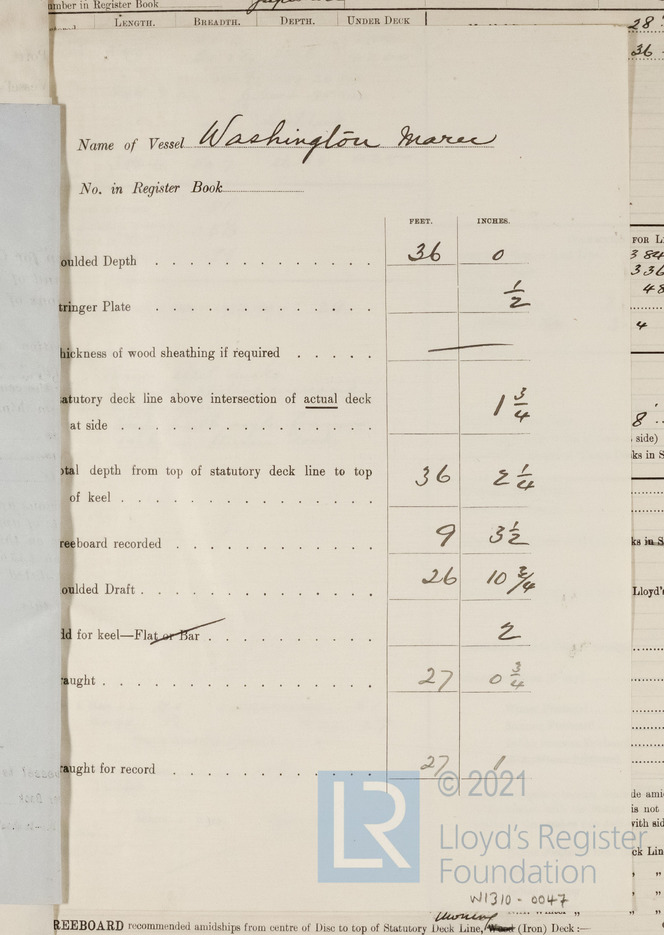 umber in Register Book
LENGTH. BREADTH. DEPTH. UNDER DECK
28
36
Name of Vessel Washington Maru
No. in Register Book
FEET. INCHES.
oulded Depth 36 0
tringer Plate 1/2
hickness of wood sheathing if required —
atutory deck line above intersection of actual deck
at side 1 3/4
otal depth from top of statutory deck line to top
of keel 36 2 1/4
reeboard recorded 9 3 1/2
oulded Draft 26 10 3/4
dd for keel—Flat or Bar 2
aught 27 0 3/4
raught for record 27 1
FOR L
384
336
48
4
8
side)
ks in S
ks in S
Lloyd's
de ami
is not
with sid
ck Lin
© 2021
LR
Lloyd's Register
Foundation
W1310-0047
REEBOARD recommended amidships from centre of Disc to top of Statutory Deck Line, Wood (Iron) Deck:—